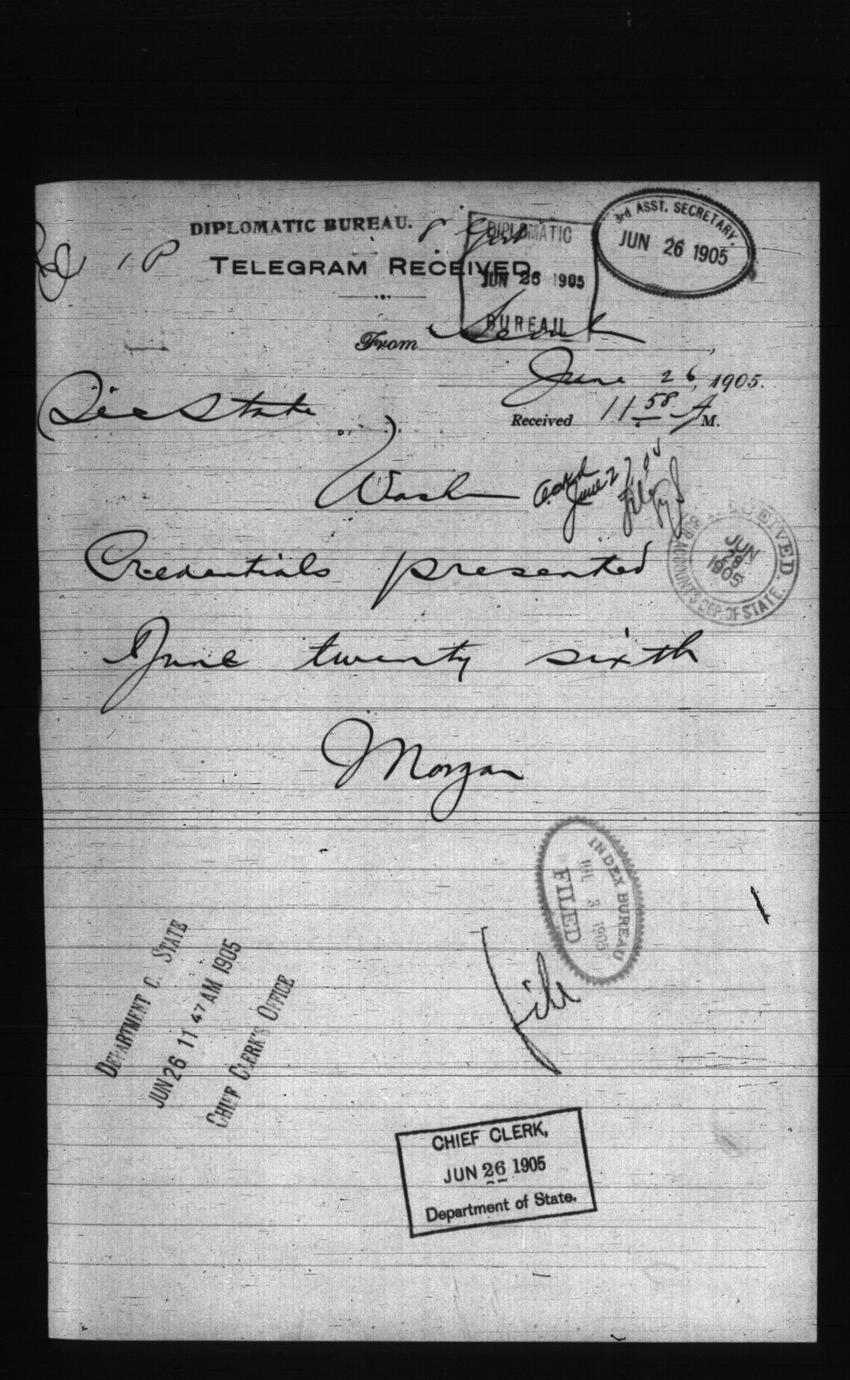 DIPLOMATIC BUREAU.
TELEGRAM RECEIVED.
DIPLOMATIC
JUN 26 1905
BUREAU
3rd ASST. SECRETARY.
JUN 26 1905
From Seoul
June 26, 1905.
Received 11 58 A M.
Sec State
Wash
June 27 05
File
RECEIVED.
JUN
28
1905
BUR. ACCOUNTS DEP. OF STATE.
Credentials presented
June twenty sixth
Morgan
INDEX BUREAU
3 1905
FILED
File
DEPARTMENT STATE
JUN 26 11 47 AM 1905
CHIEF CLERK'S OFFICE
CHIEF CLERK,
JUN 26 1905
Department of State.